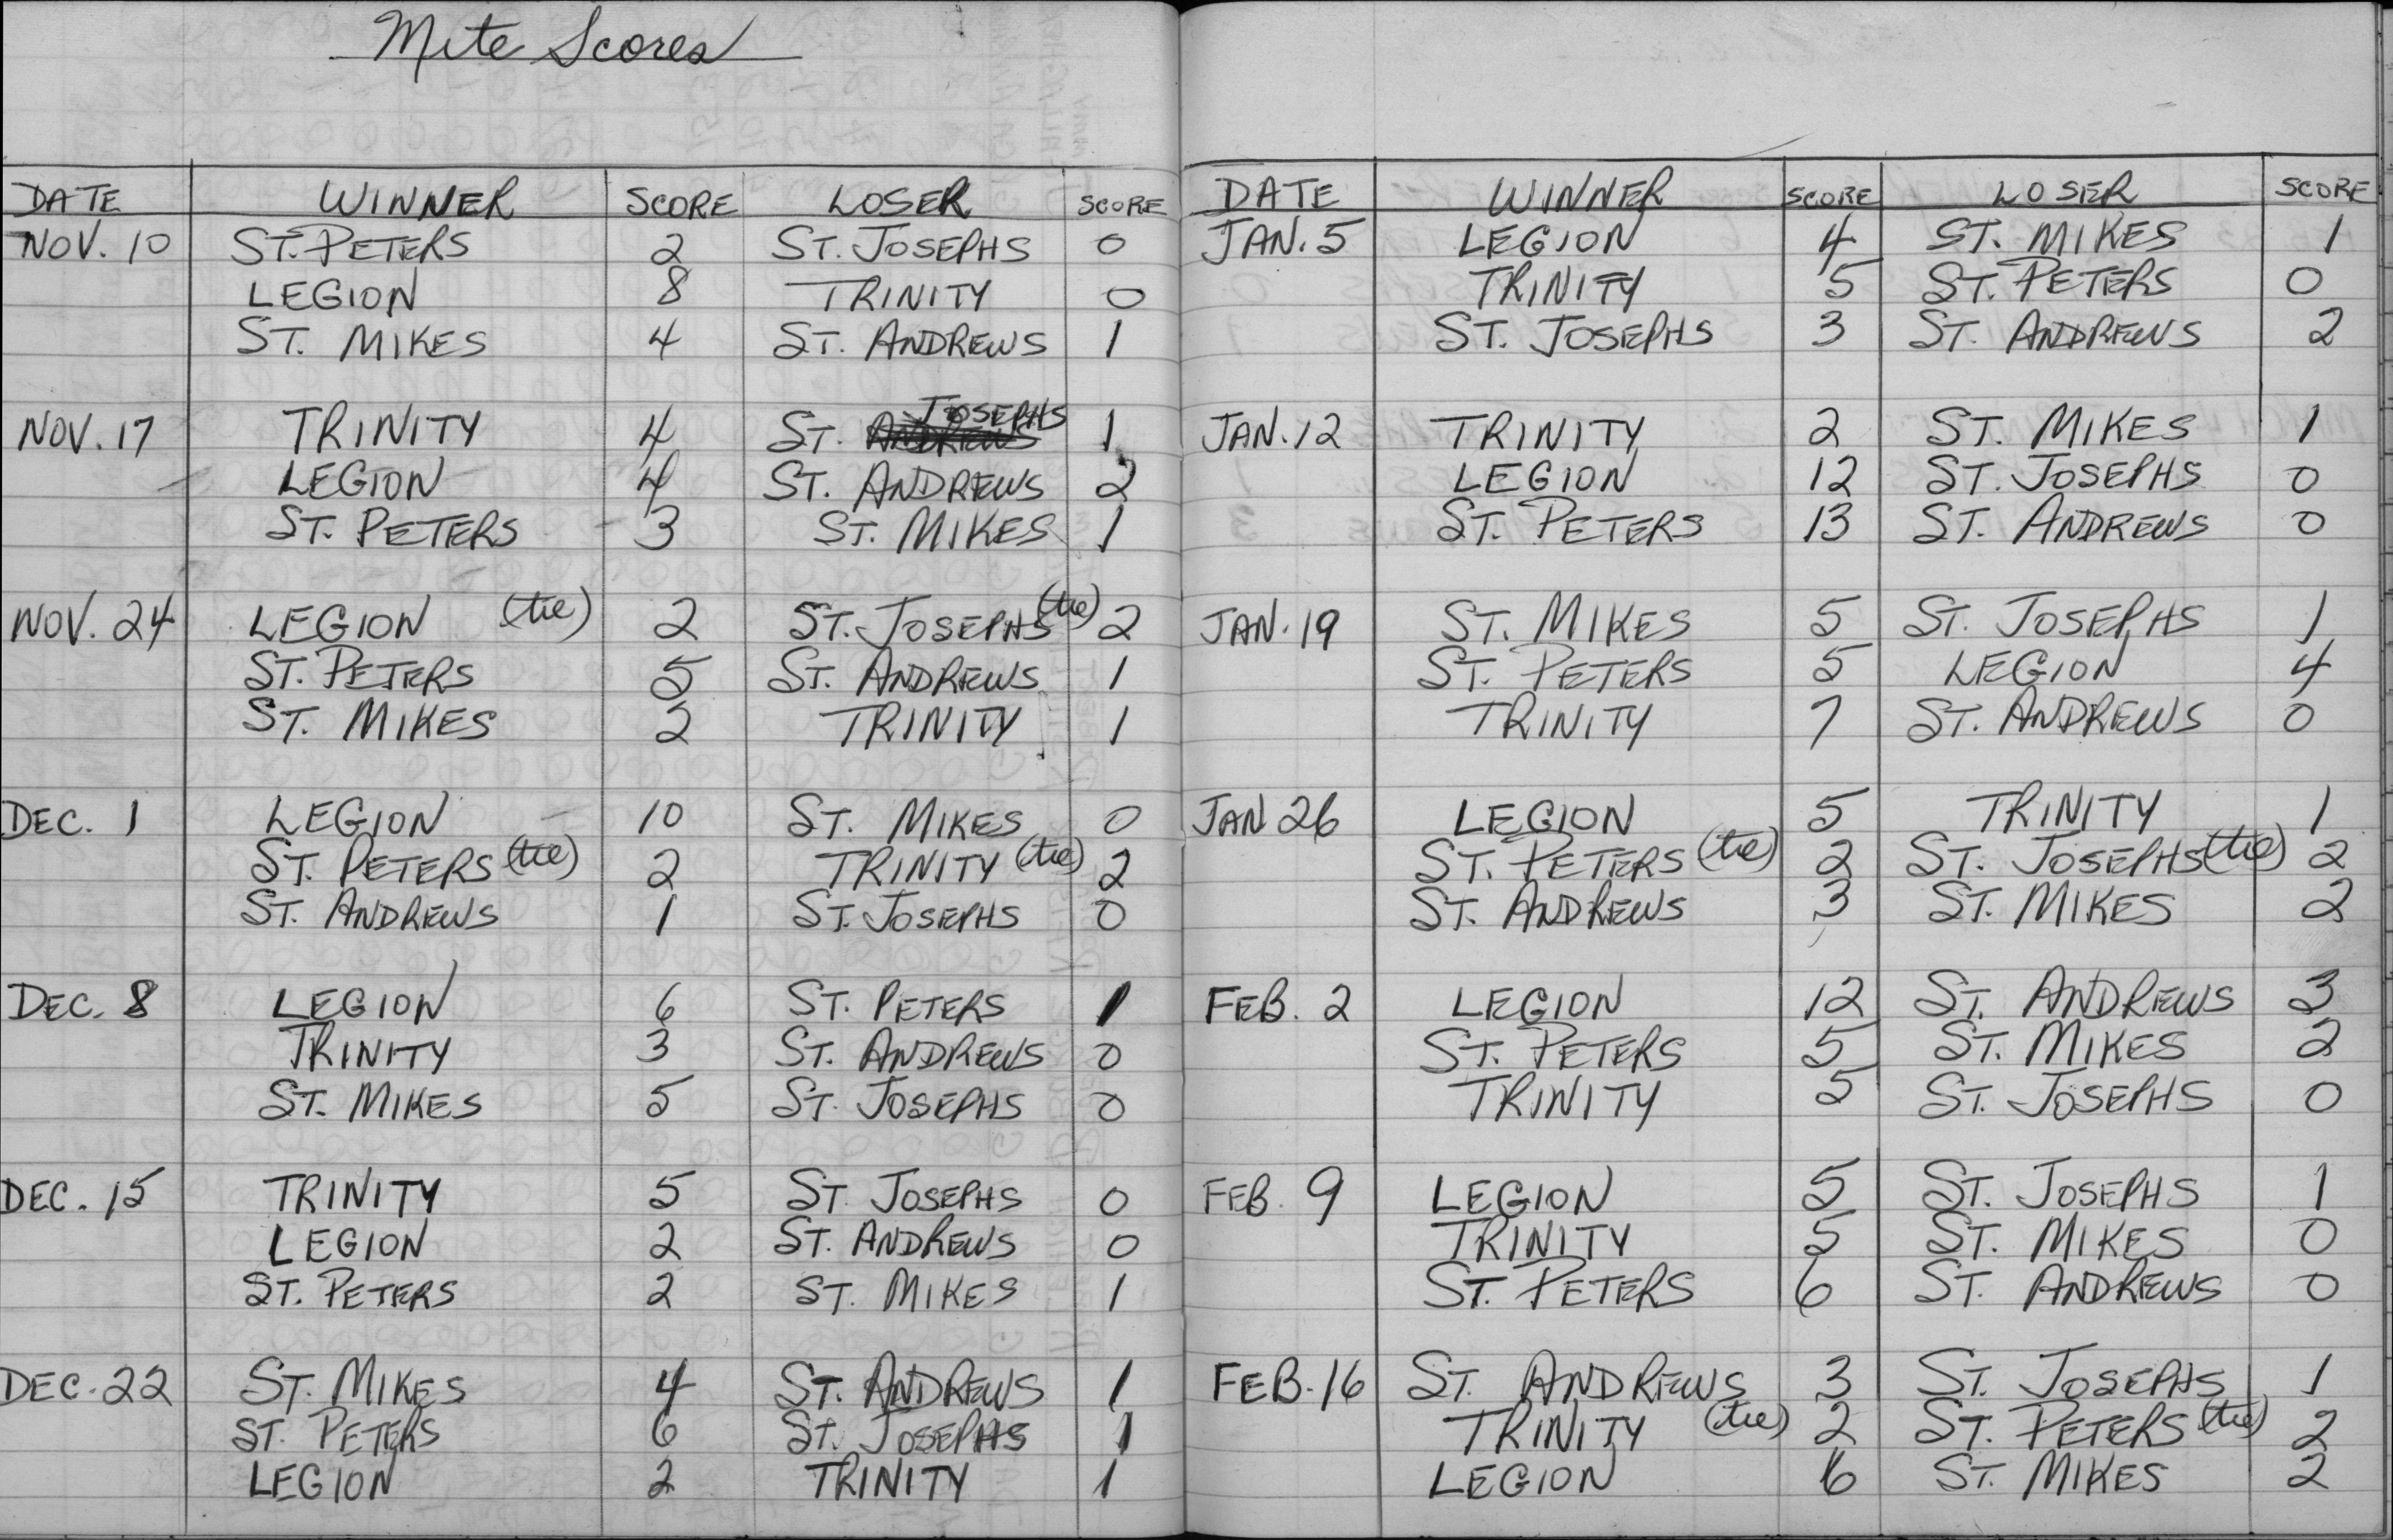 Mite Scores
DATE WINNER SCORE LOSER SCORE
NOV. 10 ST. PETERS 2 ST. JOSEPHS 0
LEGION 8 TRINITY 0
ST. MIKES 4 ST. ANDREWS 1
NOV. 17 TRINITY 4 ST. ANDREWS JOSEPHS 1
LEGION 4 ST. ANDREWS 2
ST. PETERS 3 ST. MIKES 1
NOV. 24 LEGION (tie) 2 ST. JOSEPHS (tie) 2
ST. PETERS 5 ST. ANDREWS 1
ST. MIKES 2 TRINITY 1
DEC. 1 LEGION 10 ST. MIKES 0
ST. PETERS (tie) 2 TRINITY (tie) 2
ST. ANDREWS 1 ST. JOSEPHS 0
DEC. 8 LEGION 6 ST. PETERS 1
TRINITY 3 ST. ANDREWS 0
ST. MIKES 5 ST. JOSEPHS 0
DEC. 15 TRINITY 5 ST JOSEPHS 0
LEGION 2 ST. ANDREWS 0
ST. PETERS 2 ST. MIKES 1
DEC. 22 ST. MIKES 4 ST. ANDREWS 1
ST. PETERS 6 ST. JOSEPHS 1
LEGION 2 TRINITY 1
DATE WINNER SCORE LOSER SCORE
JAN. 5 LEGION 4 ST. MIKES 1
TRINITY 5 ST. PETERS 0
ST. JOSEPHS 3 ST. ANDREWS 2
JAN. 12 TRINITY 2 ST. MIKES 1
LEGION 12 ST. JOSEPHS 0
ST. PETERS 13 ST. ANDREWS 0
JAN. 19 ST. MIKES 5 ST. JOSEPHS 1
ST. PETERS 5 LEGION 4
TRINITY 7 ST. ANDREWS 0
JAN 26 LEGION 5 TRINITY 1
ST. PETERS (tie) 2 ST. JOSEPHS (tie) 2
ST. ANDREWS 3 ST. MIKES 2
FEB. 2 LEGION 12 ST. ANDREWS 3
ST. PETERS 5 ST. MIKES 2
TRINITY 5 ST. JOSEPHS 0
FEB. 9 LEGION 5 ST. JOSEPHS 1
TRINITY 5 ST. MIKES 0
ST. PETERS 6 ST. ANDREWS 0
FEB. 16 ST. ANDREWS 3 ST. JOSEPHS 1
TRINITY (tie) 2 ST. PETERS (tie) 2
LEGION 6 ST. MIKES 2